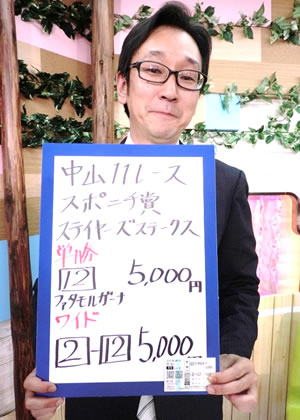 中山11レース
スポニチ賞
ステイヤーズステークス
単勝
12 5,000円
ファタモルガーナ
ワイド
2-12 5,000